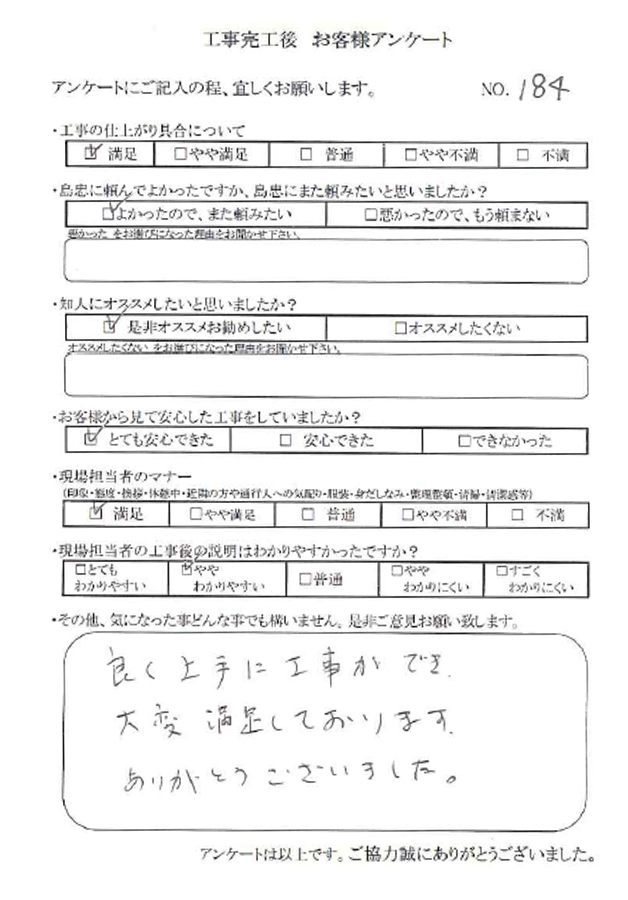 工事完工後 お客様アンケート
アンケートにご記入の程、宜しくお願いします。 NO. 184
・工事の仕上がり具合について
☑ 満足 □やや満足 □ 普通 □やや不満 □ 不満
・島忠に頼んでよかったですか、島忠にまた頼みたいと思いましたか?
☑よかったので、また頼みたい □悪かったので、もう頼まない
悪かった をお選びになった理由をお聞かせ下さい。
・知人にオススメしたいと思いましたか?
☑ 是非オススメお勧めしたい □オススメしたくない
オススメしたくない をお選びになった理由をお聞かせ下さい。
・お客様から見て安心した工事をしていましたか?
☑ とても安心できた □ 安心できた □できなかった
・現場担当者のマナー
(印象・態度・挨拶・休憩中・近隣の方や通行人への気配り・服装・身だしなみ・整理整頓・清掃・清潔感等)
☑ 満足 □やや満足 □ 普通 □やや不満 □ 不満
・現場担当者の工事後の説明はわかりやすかったですか?
□とても わかりやすい ☑やや わかりやすい □普通 □やや わかりにくい □すごく わかりにくい
・その他、気になった事どんな事でも構いません。是非ご意見お願い致します。
良く上手に工事ができ
大変満足しております。
ありがとうございました。
アンケートは以上です。ご協力誠にありがとうございました。